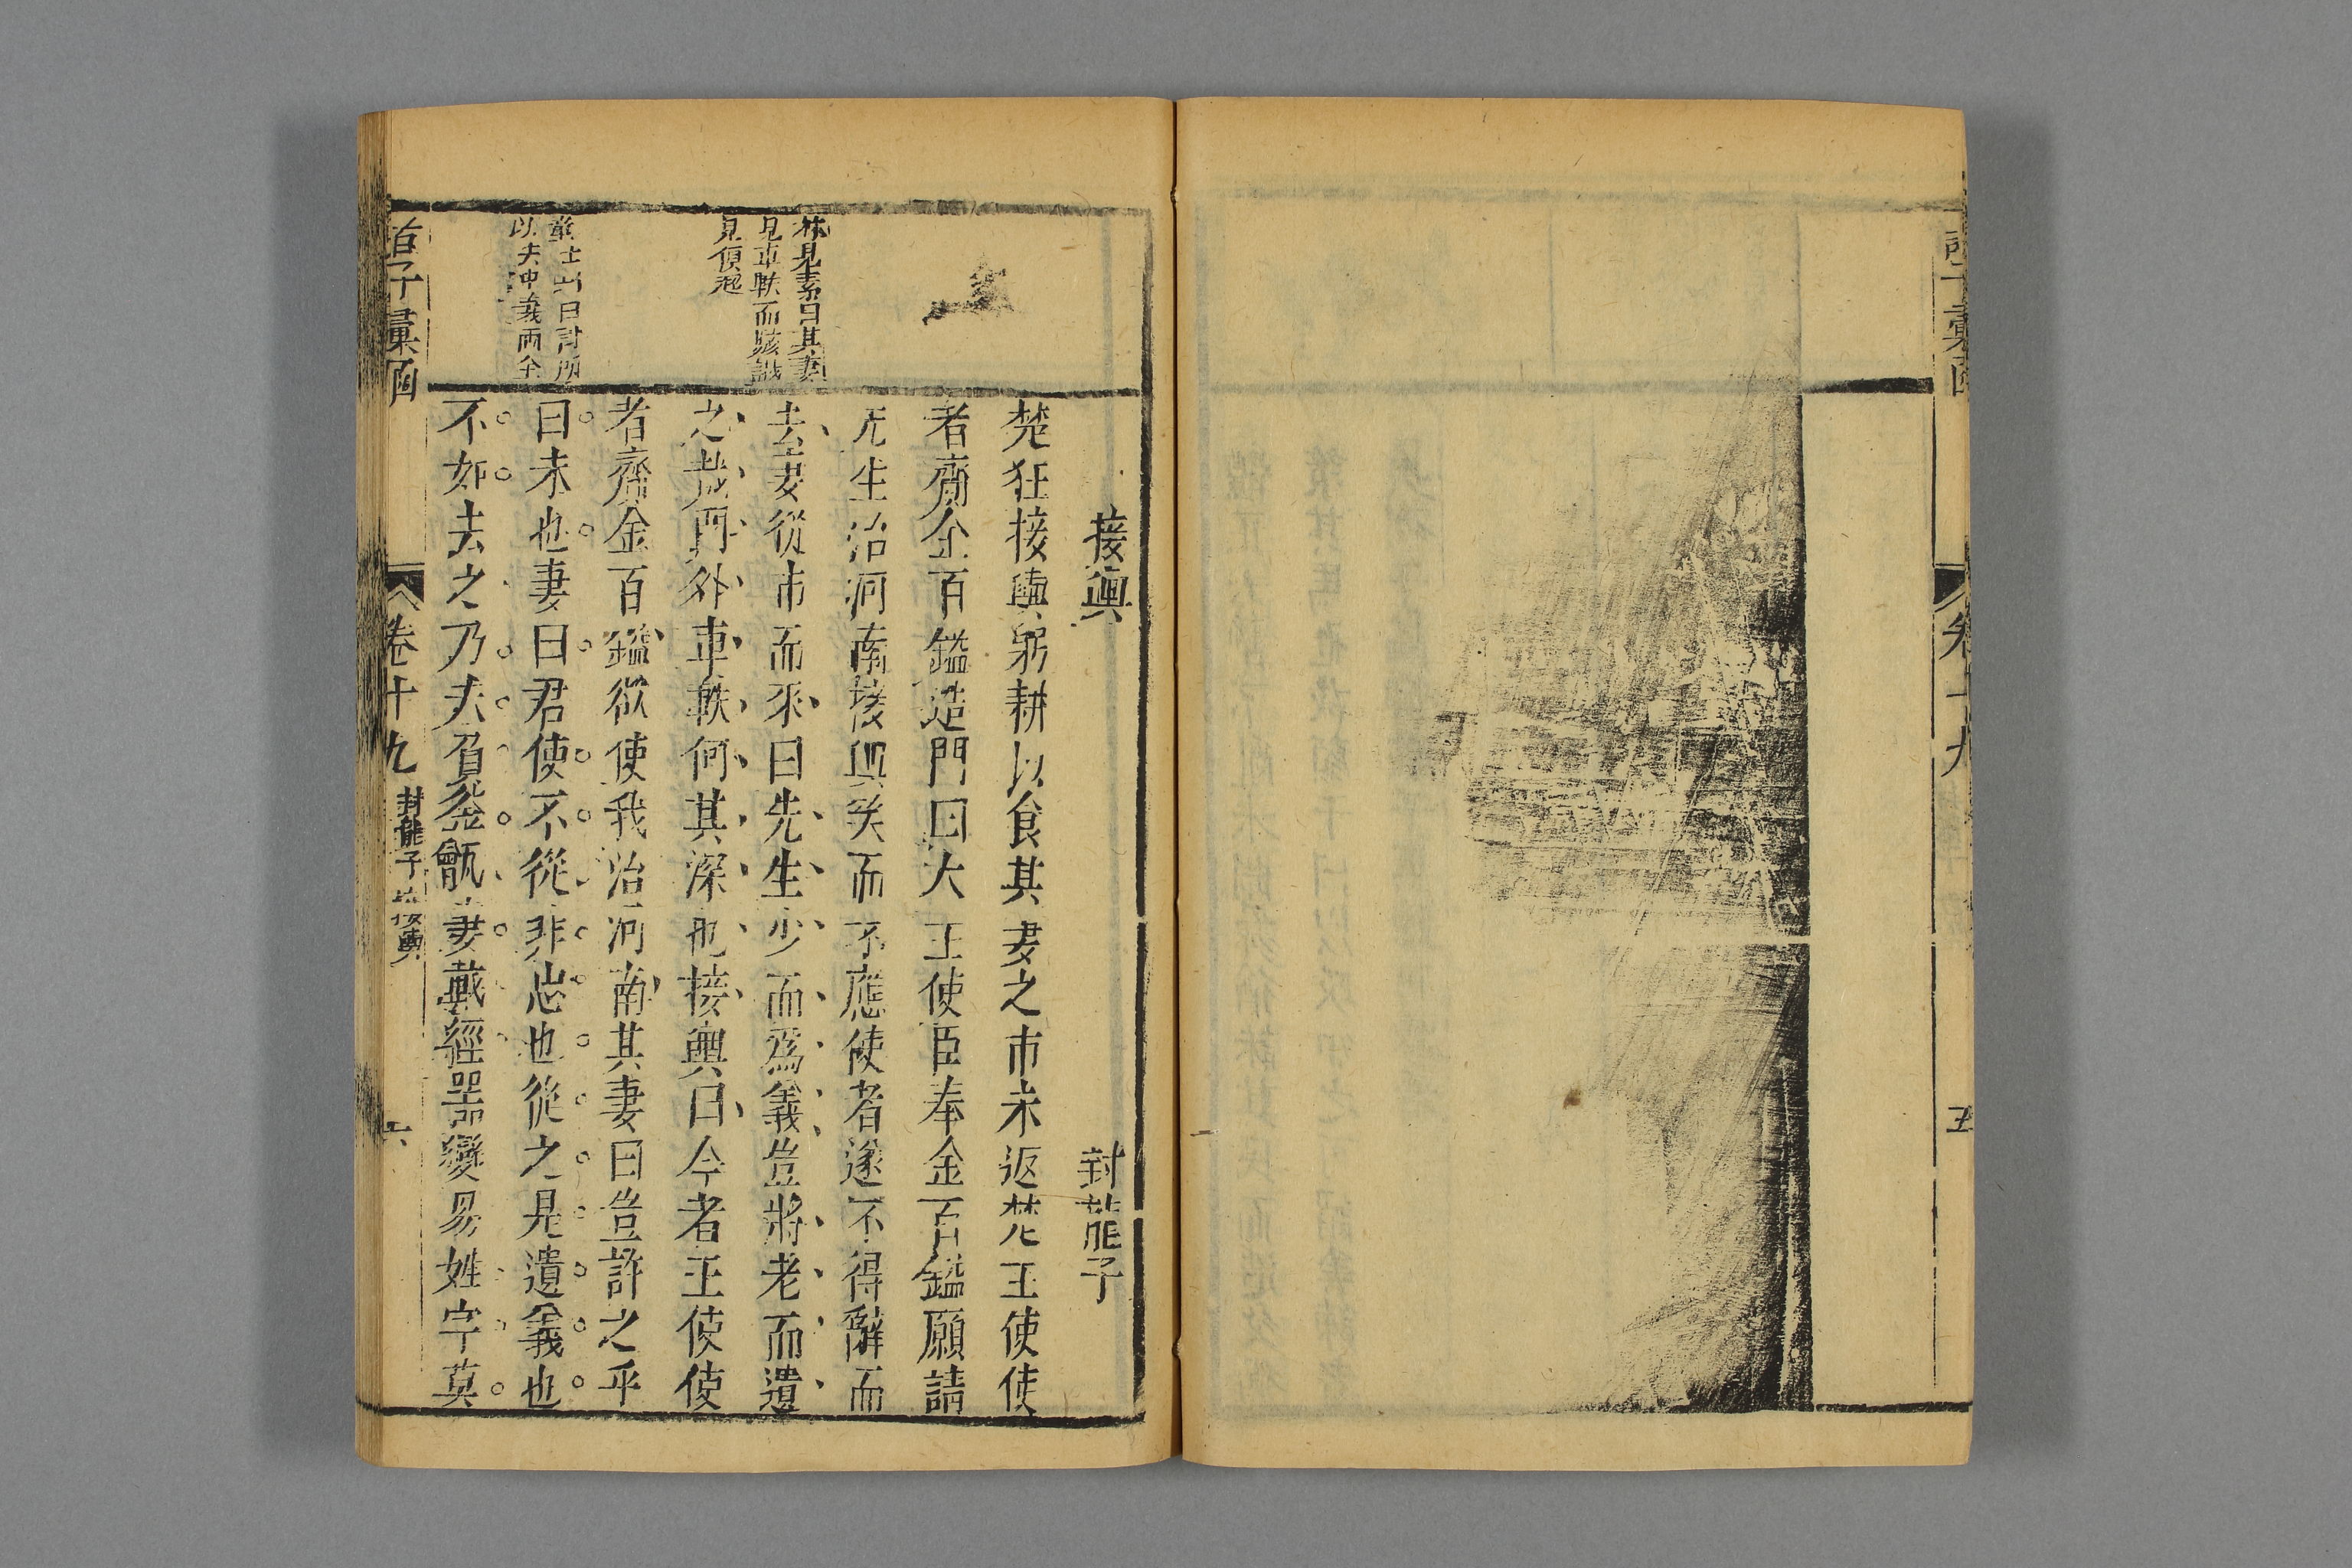 卷十九
五
接輿
封龍子
楚狂接輿躬耕以食其妻之市未返楚王使使
者齎金百鎰造門曰大王使臣奉金百鎰願請
先生治河南接輿笑而不應使者遂不得辭而
去妻從市而來曰先生少而爲義豈將老而遺
之哉門外車軼何其深也接輿曰今者王使使
者齎金百鎰欲使我治河南其妻曰豈許之乎
曰未也妻曰君使不從非忠也從之是遺義也
不如去之乃夫負釜甑妻戴經噐變易姓字莫
林見素曰其妻
見車軼而駭識
見負超
曰討所
以夫冲義兩全
諸子彙函
卷十九
封龍子
接輿
六